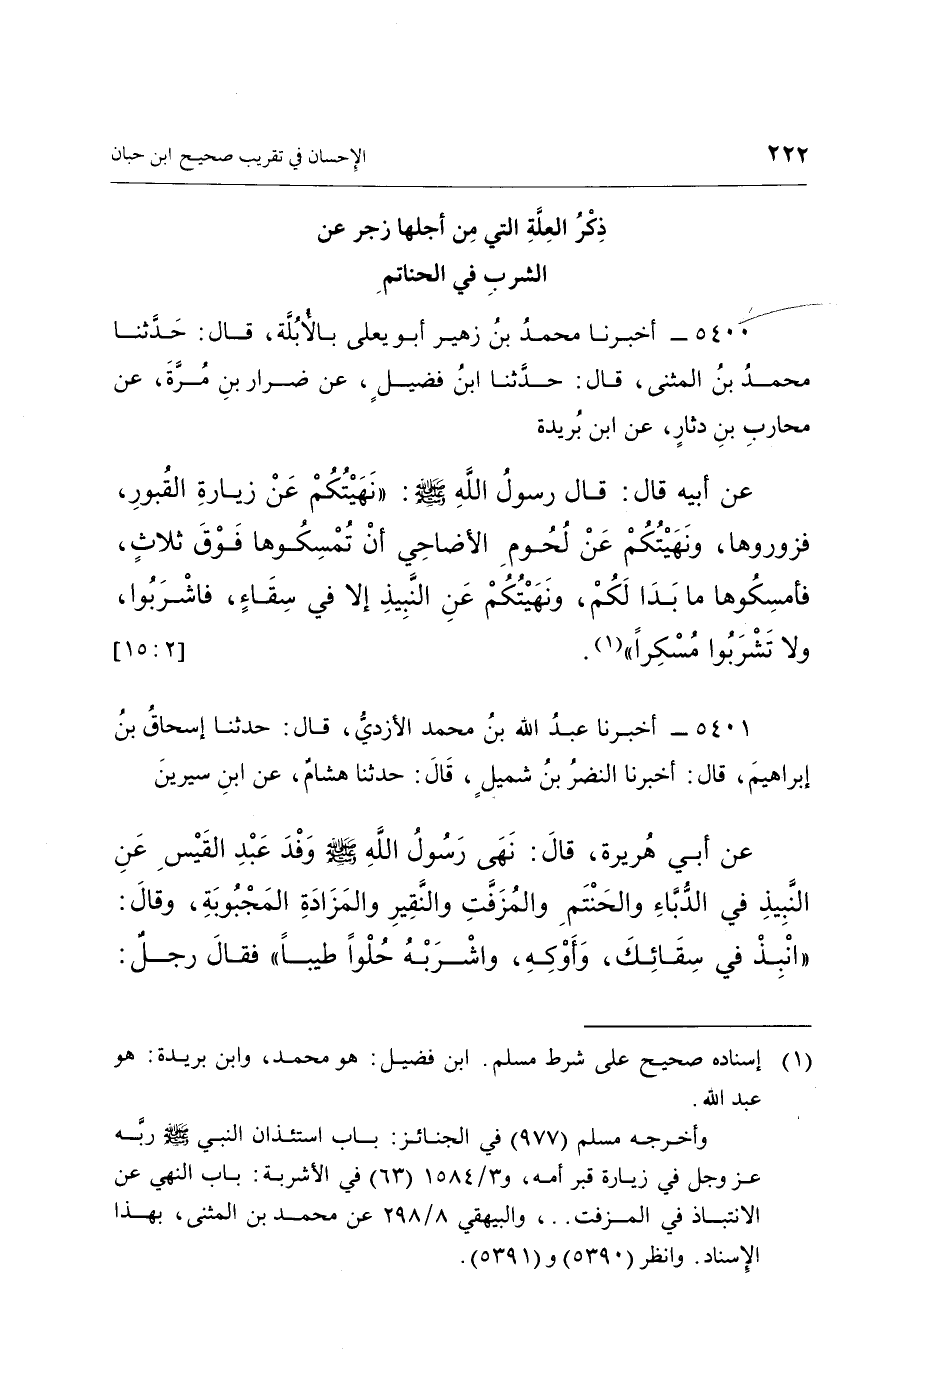 ٢٢٢ الإحسان في تقريب صحيح ابن حبان
ذِكْرُ العِلَّةِ التي مِن أجلها زجر عن
الشربِ في الحناتمِ
٥٤٠٠ ــ أخبرنا محمدُ بنُ زهير أبو يعلى بالأُبُلَّة، قال: حَدَّثنا
محمدُ بنُ المثنى، قال: حدَّثنا ابنُ فضيلٍ، عن ضرار بنِ مُرَّةَ، عن
محاربِ بنِ دثارٍ، عن ابن بُريدة
عن أبيه قال: قال رسولُ اللَّهِ ﷺ: «نَهَيْتُكُمْ عَنْ زيارةِ القُبورِ،
فزوروها، ونَهَيْتُكُمْ عَنْ لُحُومِ الأضاحِي أنْ تُمْسِكُوها فَوْقَ ثلاثٍ،
فأمسِكُوها ما بَدَا لَكُمْ، ونَهَيْتُكُمْ عَنِ النَّبِيذِ إلا في سِقَاءٍ، فاشْرَبُوا،
ولا تَشْرَبُوا مُسْكِراً»(١). [٢: ١٥]
٥٤٠١ ــ أخبرنا عبدُ الله بنُ محمد الأزديُّ، قال: حدثنا إسحاقُ بنُ
إبراهيمَ، قال: أخبرنا النضرُ بنُ شميلٍ، قَالَ: حدثنا هشامٌ، عن ابنِ سيرينَ
عن أبي هُريرة، قالَ: نَهَى رَسُولُ اللَّهِ ﷺ وَفْدَ عَبْدِ القَيْسِ عَنِ
النَّبِيذِ في الدُّبَّاءِ والحَنْتَمِ والمُزَفَّتِ والنَّقِيرِ والمَزَادَةِ المَجْبُوبَةِ، وقالَ:
«انْبِذْ في سِقَائِكَ، وَأَوْكِهِ، واشْرَبْهُ حُلْواً طيباً» فقالَ رجلٌ:
(١) إسناده صحيح على شرط مسلم. ابن فضيل: هو محمد، وابن بريدة: هو
عبد الله.
وأخرجه مسلم (٩٧٧) في الجنائز: باب استئذان النبي ﷺ ربَّه
عز وجل في زيارة قبر أمه، و٣/١٥٨٤ (٦٣) في الأشربة: باب النهي عن
الانتباذ في المزفت..، والبيهقي ٨/٢٩٨ عن محمد بن المثنى، بهذا
الإسناد. وانظر (٥٣٩٠) و(٥٣٩١).